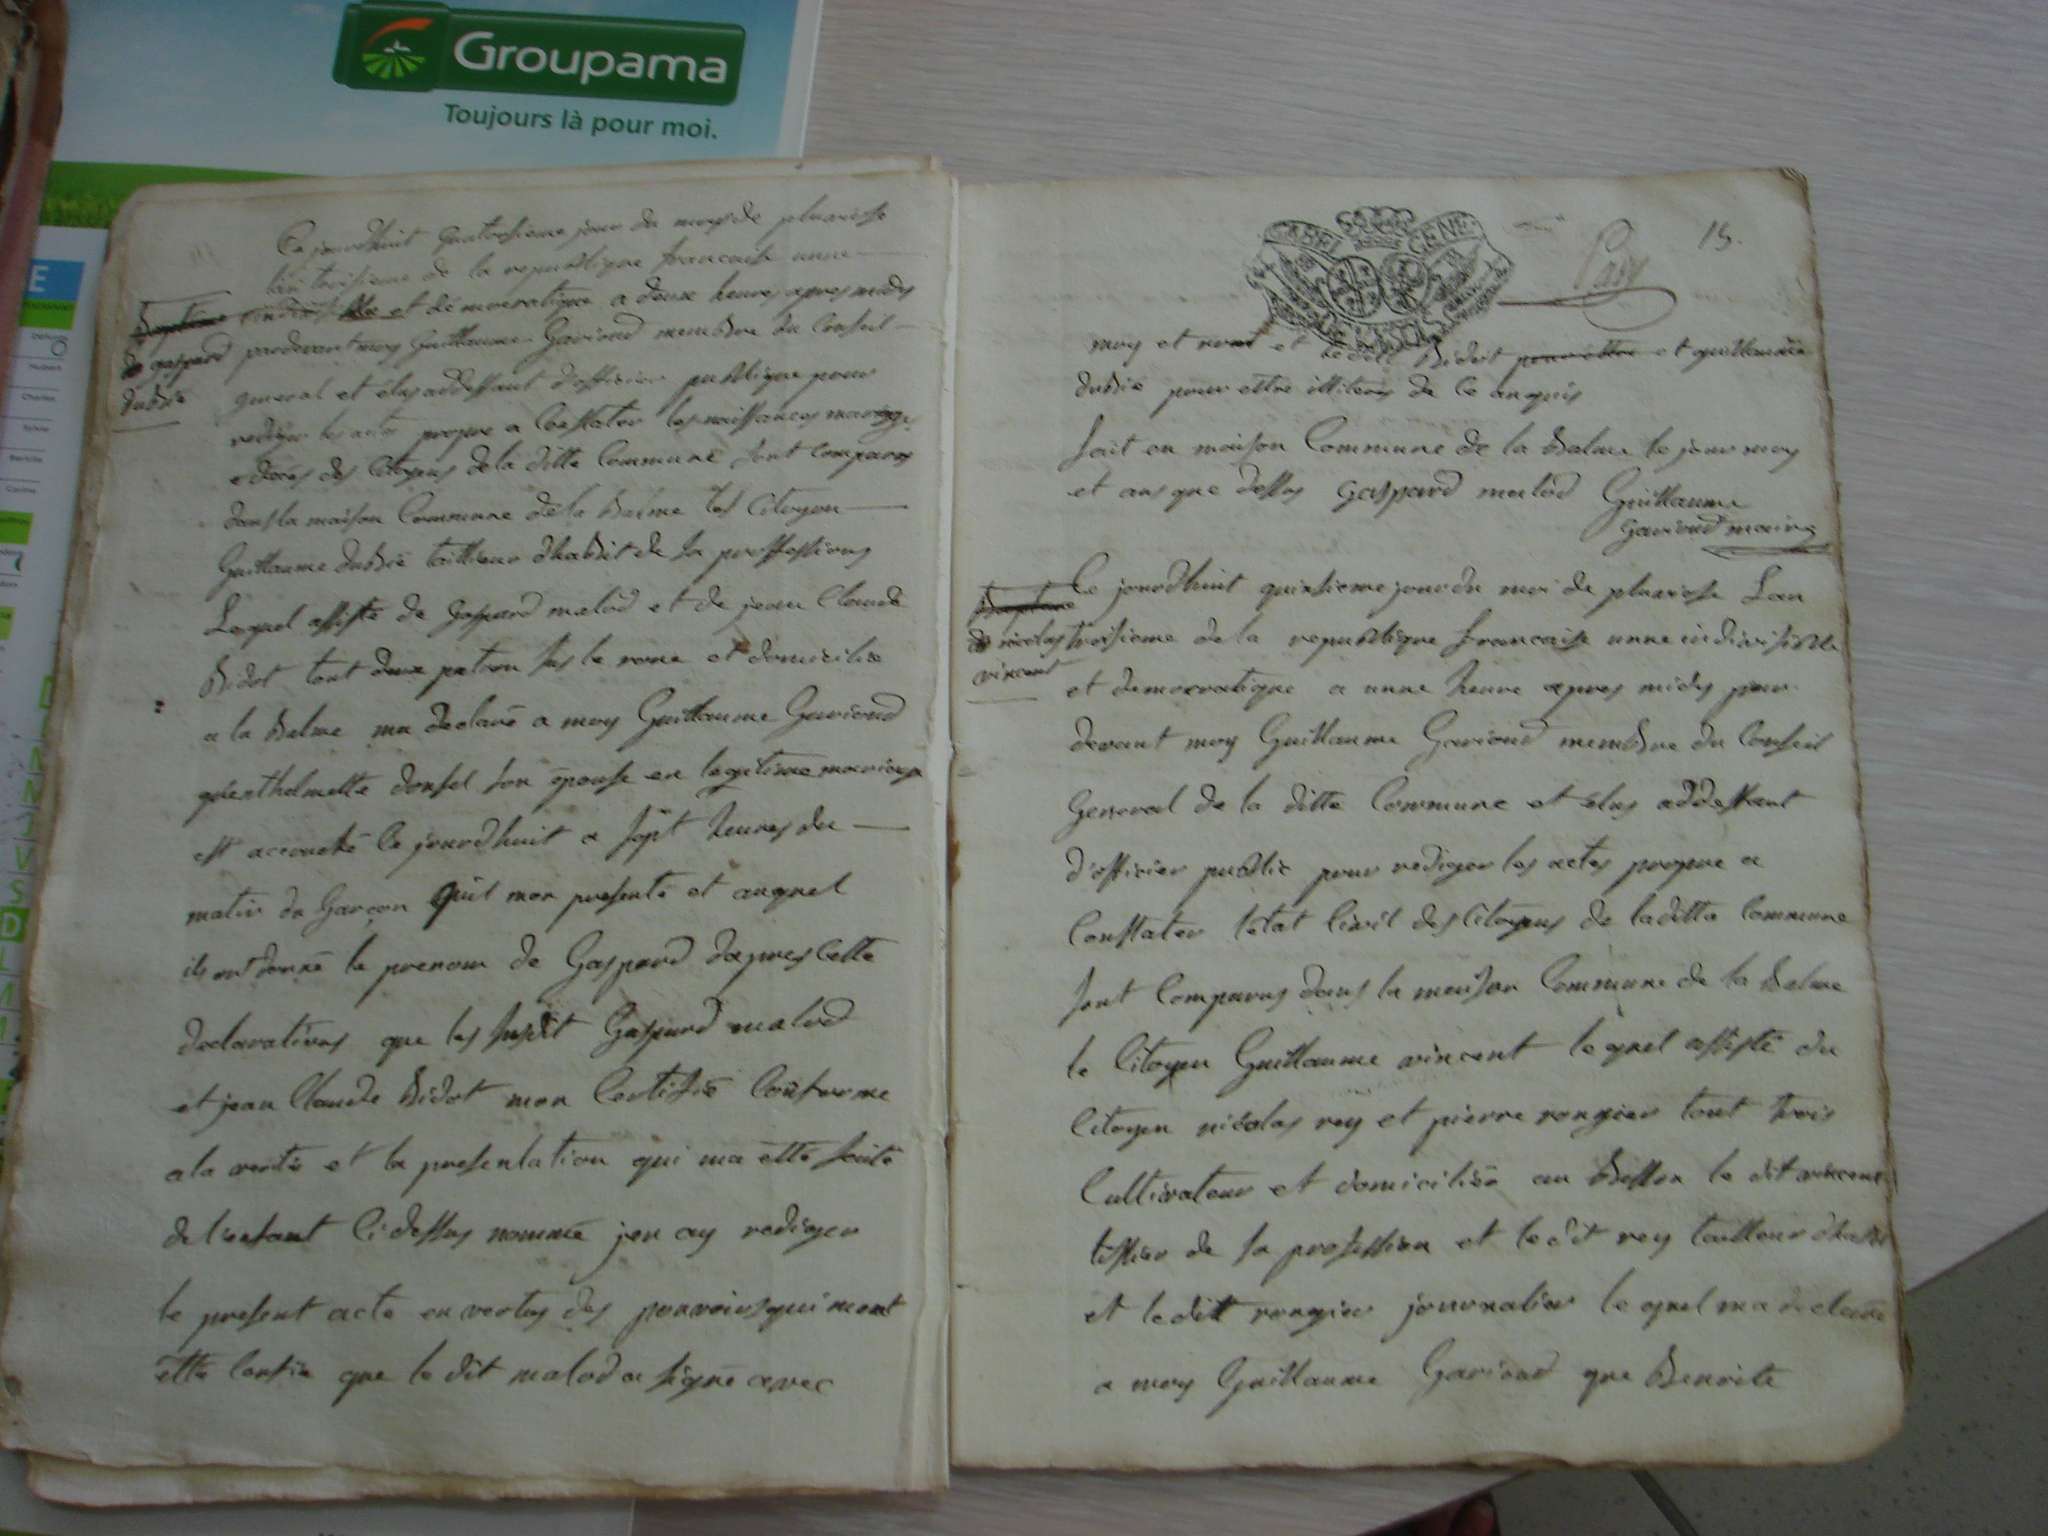 Groupama
Toujours là pour moi.
Ce jourdhuit quatorsieme jour du moys de pluviose
lan troisieme de la republique francaise unne
indivisible et démocratique a deux heures apres midy
de gaspard
dubié
pardevant moy Guillaume Gavioud membre du Conseil
general et élus addessant d'officier publique pour
rediger les actes propre a Constater les naissances mariage
e deces des Citoyens de la ditte Commune sont comparus
dans la maison Commune de la Balme les Citoyen
Guillaume dubié tailleur dhabit de sa proffessions
Lequel assisté de gaspard malod et de jean Claude
Bidot tout deux patron sus le rone et domicilie
a la Balme ma declaré a moy Guillaume Gavioud
donsel son épouse en legitime mariage
est accouché Ce jourdhuit a sept heures du
matin du Garçon quil mon presenté et auquel
ils ont donné le prenom de Gaspard dapres Cette
declarations que les susdit Gaspard malod
et jean Claude Bidot mon Certifié Conforme
a la verité et la presentation qui ma etté faite
de lenfant Ci dessus nommé jen ay rediger
le present acte en vertus des pouvoirs qui mont
etté Confié que le dit malod a signé avec
GENE
15.
moy et non et le dit Bidot pour ettre et guillaume
dubié pour ettre illiteres de Ce enquis
fait en maison Commune de la Balme le jour moy
et ans que dessus gaspard malod Guillaume
Gavioud maire
Ce jourdhuit quinsieme jour du moi de pluviose Lan
de nicolas
vincent
troisieme de la republique francaise unne indivisible
et democratique a unne heure apres midy par
devant moy Guillaume Gavioud membre du Conseil
General de la ditte Commune et élus addessant
d'officier public pour rediger les actes propre a
Constater letat Civil des Citoyens de la ditte Commune
sont Comparus dans la maison Commune de la Balme
le Citoyen Guillaume vincent lequel assisté du
Citoyen nicolas rey et pierre rongier tout trois
Cultivateur et domicilié au le dit vincent
tissier de sa profession et le dit rey tailleur dhabit
et le dit rongier journalier le quel ma declaré
a moy Guillaume Gavioud que Benoite